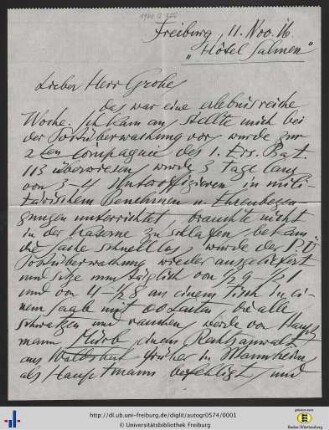 Freiburg, 11. Nov. 16.
"Hôtel Salmen"
Lieber Herr Grohe
das war eine erlebnisreiche
Woche. Ich kam an stellte mich bei
der Postüberwachung vor, wurde zur
Compagnie des 1. Ers. Bat.
113 überwiesen, wurde 3 Tage lang
von 3-4 Unteroffizieren in mili-
tärischem Benehmen u. Ehrenbezeu-
gungen unterrichtet, brauchte nicht
in der Kaserne zu schlafen, bekam
die schnellstens, wurde der
Postüberwachung wieder ausgeliefert
und sitze nun täglich von ½9 - ½1
und von 4-½8 an einem Tisch in ei-
nem Saale mit 60 Leuten die alle
schwatzen und rauchen, werde von Haupt-
mann einem Rechtsanwalt
aus Waldshut früher in Mannheim
als Hauptmann und
http://dl.ub.uni-freiburg.de/diglit/autogr0574/0001
© Universitätsbibliothek Freiburg